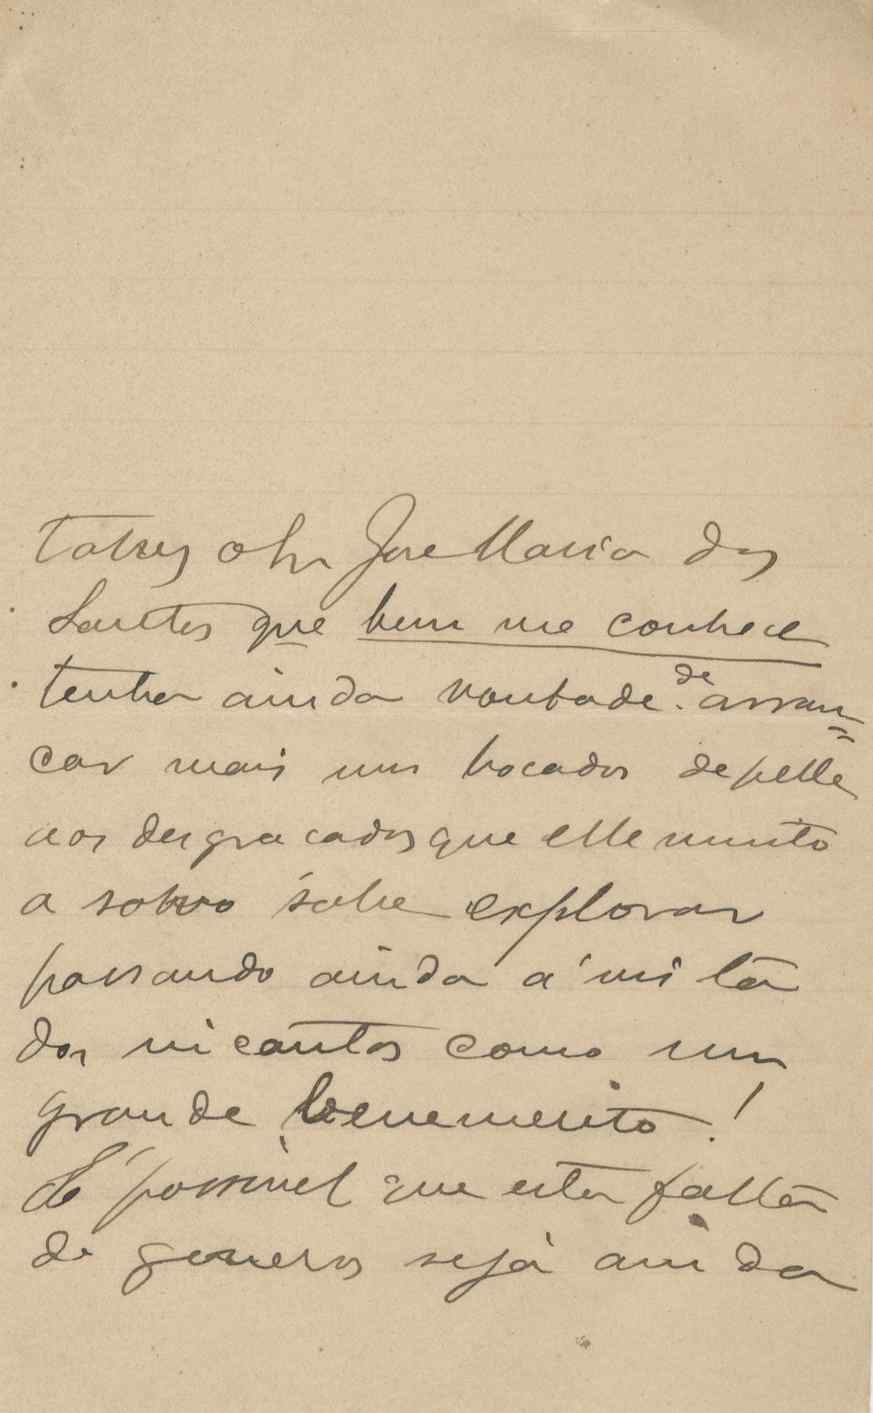 talvez o Snr José Maria dos
Santos que bem me conhece
tenha ainda vontade de arran=
car mais uns bocados de pelle
aos desgraçados que elle muito
a salvo sabe explorar
passando ainda á vista
dos incautos como um
grande benemerito!
É possivel que esta falta
de generos seja ainda